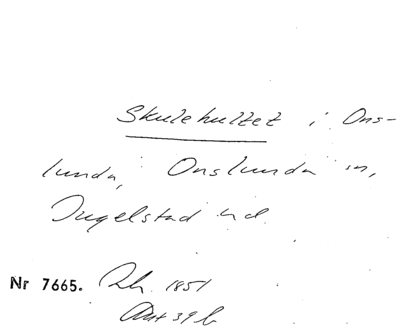 Skulehultet i Ons-
lunda, Onslunda sn,
Ingelstad hd.
Nr 7665. Rh. 1851
Akt 39 b